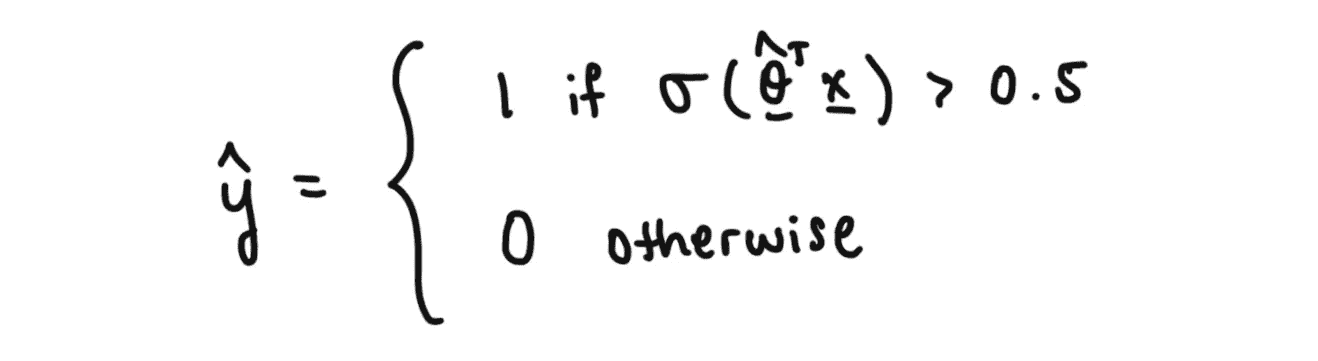 1 if σ(θ̂ᵀx) > 0.5
ŷ = {
0 otherwise